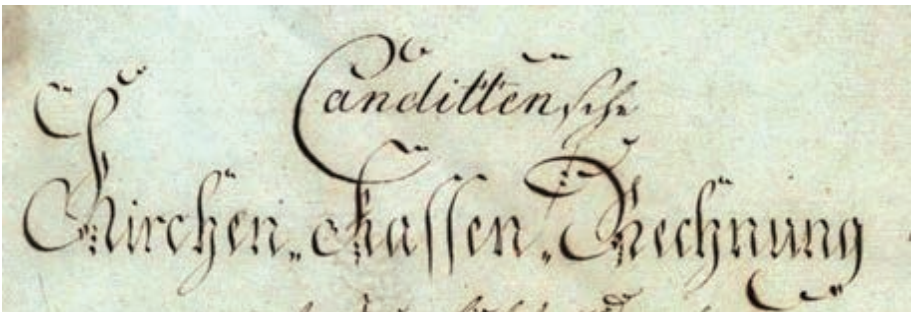 Candittensche
Kirchen„Kassen„Rechnung